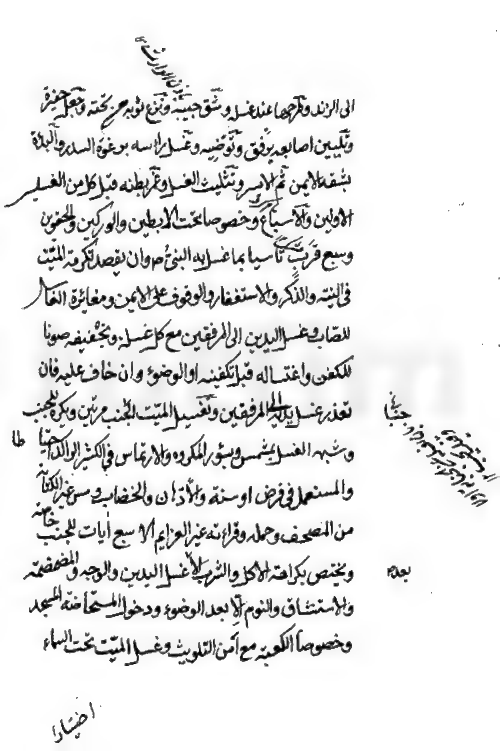 الى الزند وطرحها عند غسله وشق جيبه ونزع ثوبه من تحته وجعل حفيرة
وتليين اصابعه برفق وتوضيه وغسل راسه برغوة السدر والبدأة
بشقه الايمن ثم الايسر وتثليث الغسل وغمر بطنه قبل كل من الغسلين
الاولين والاسباغ وخصوصا تحت الابطين والوركين والحقوين
وسبع قرب تأسيا بما غسل به النبي ص وان يقصد تكرمة الميت
في النية والذكر والاستغفار والوقوف على الايمن ومغايرة الغاسل
للصاب وغسل اليدين الى المرفقين مع كل غسلة وتجفيفه صونا
للكفن واغتساله قبل تكفينه او الوضوء وان خاف عليه فان
تعذر غسل يديه الى المرفقين وتغسيل الميت الجنب مرتين ويكره للجنب
وشبهه الغسل بمشمس وبسؤر المكروه والارتماس في الكثير الراكد
والمستعمل في فرض او سنة والأدهان والخضاب ومس غير الكتابة
من المصحف وحمله وقراءته غير العزايم الا سبع آيات للجنب خاصة
ويختص بكراهة الاكل والشرب الا بغسل اليدين والوجه والمضمضة
والاستنشاق والنوم الا بعد الوضوء ودخول المستحاضة المسجد
وخصوصا الكعبة مع أمن التلويث وغسل الميت تحت السماء
اختيارا